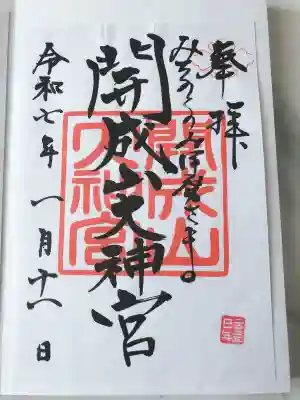 奉拝
みちのくのお伊勢さま。
開成山大神宮
開成山
大神宮
令和七年 一月十八日